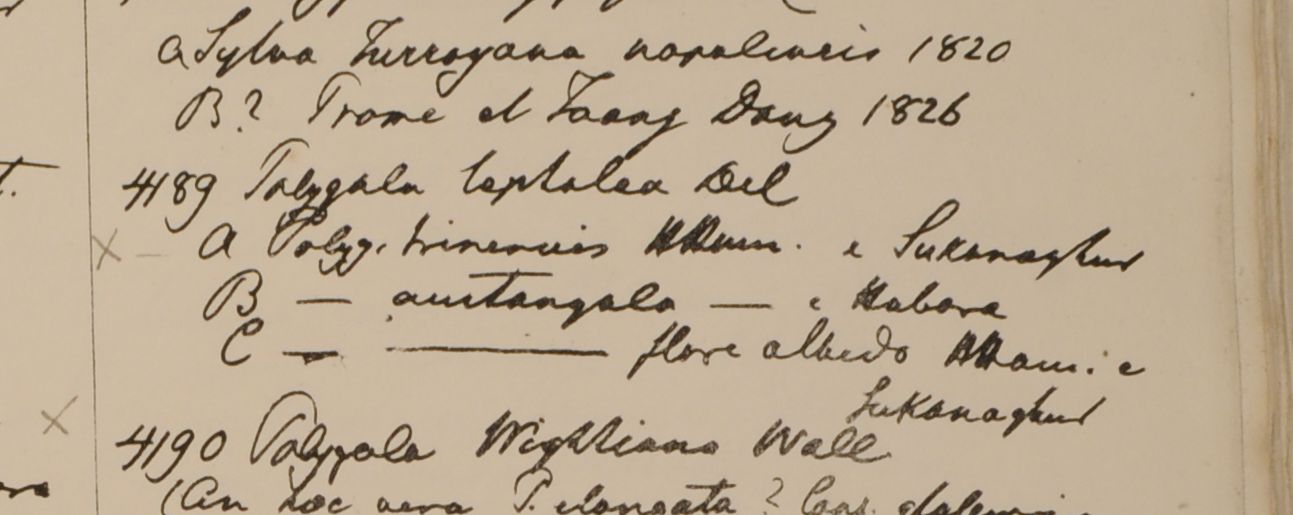 a Sylva Turrayana napalensis 1820
B? Prome et Taong Dong 1826
4189 Polygala leptalea Del
a Polyg. trinervis HHam. e Sukanaghur
B — austangula — e Habora
C — ——— flore albedo HHam. e
Sukanaghur
4190 Polygala Wightiana Wall
(An hoc vera P. elongata?